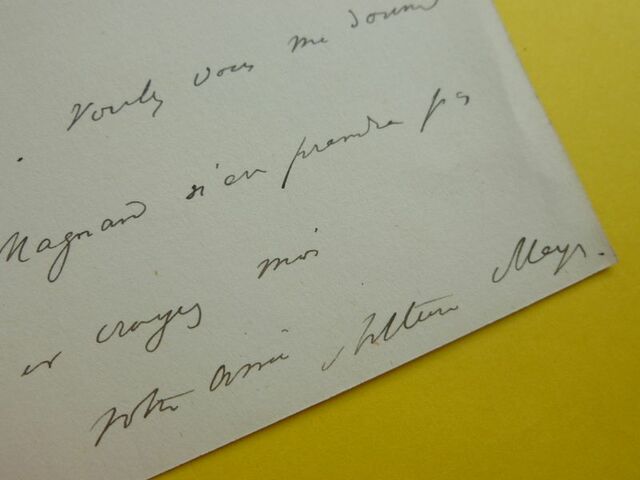 Voulez vous me donner
Magnard n'en prendra pas
et croyez moi
votre ami Arthur Meyer.